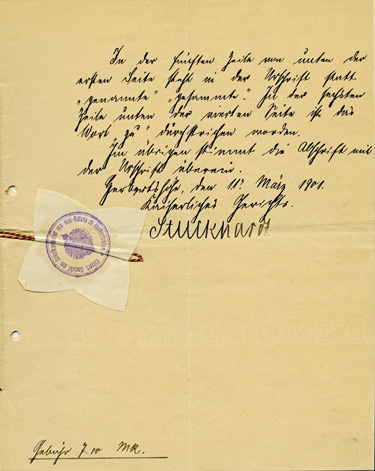 In der fünften Zeile von unten der
ersten Seite steht in der Urschrift statt
„genannte“ „gesammte“. In der sechsten
Zeile unten der vierten Seite ist das
Wort „zu“ durchstrichen worden.
Im übrigen stimmt die Abschrift mit
der Urschrift überein.
Herbertshöhe, den 11. März 1901.
Kaiserliches Gericht.
Stuckhardt
Gebühr 7.00 Mk.